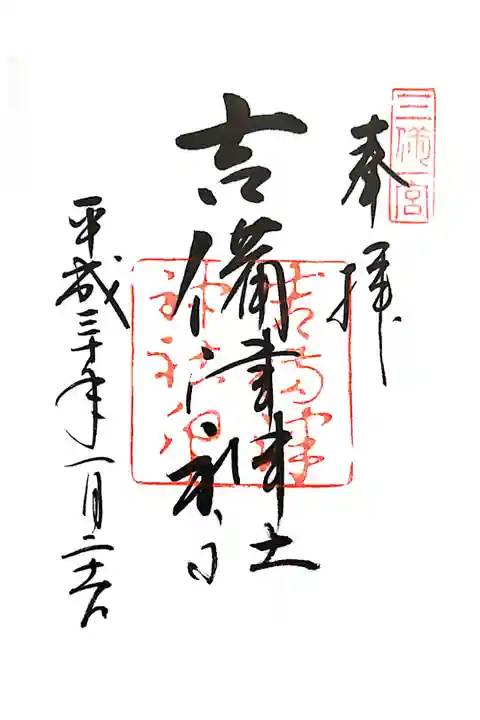 三備一宮
奉拝
吉備津神社
吉備津
神社印
平成三十年一月二十六日